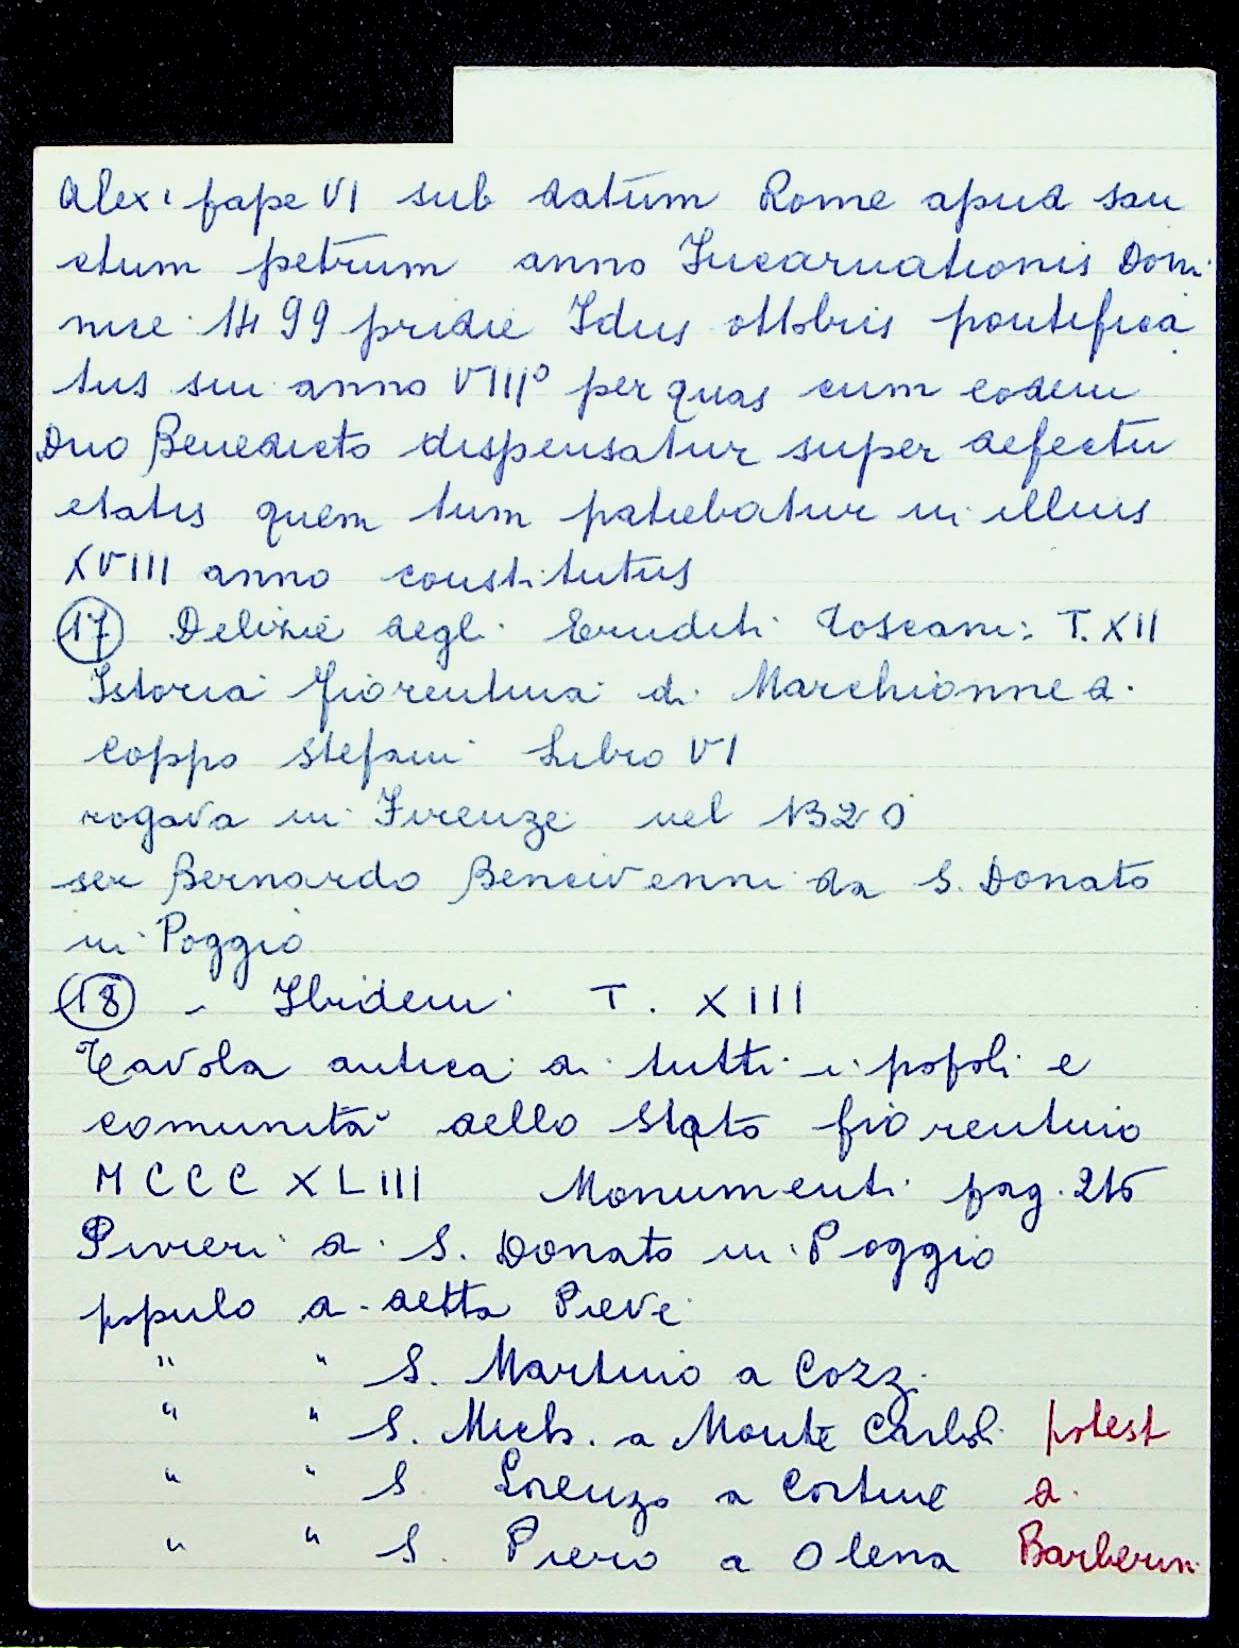 Alexi pape VI sub datum Rome apud san
ctum petrum anno Incarnationis Domi
nice 1499 pridie Idus ottobris pontifica
tus sui anno VIII° per quas cum eodem
Dno Benedicto dispensatur super defectu
etatis quem tum patiebatur in illius
XVIII anno constitutus
17 Delizie degli Eruditi Toscani: T. XII
Istoria fiorentina di Marchionne di
Coppo Stefani Libro VI
rogava in Firenze nel 1320
ser Bernardo Bencivenni da S. Donato
in Poggio
18 - Ibidem T. XIII
Tavola antica di tutti i popoli e
comunità dello Stato fiorentino
MCCCXLIII Monumenti pag. 215
Pivieri di S. Donato in Poggio
populo di detta Pieve
" " S. Martino a Cozzi
" " S. Mich. a Monte Carboli potest
" " S. Lorenzo a Cortine di
" " S. Piero a Olena Barberin